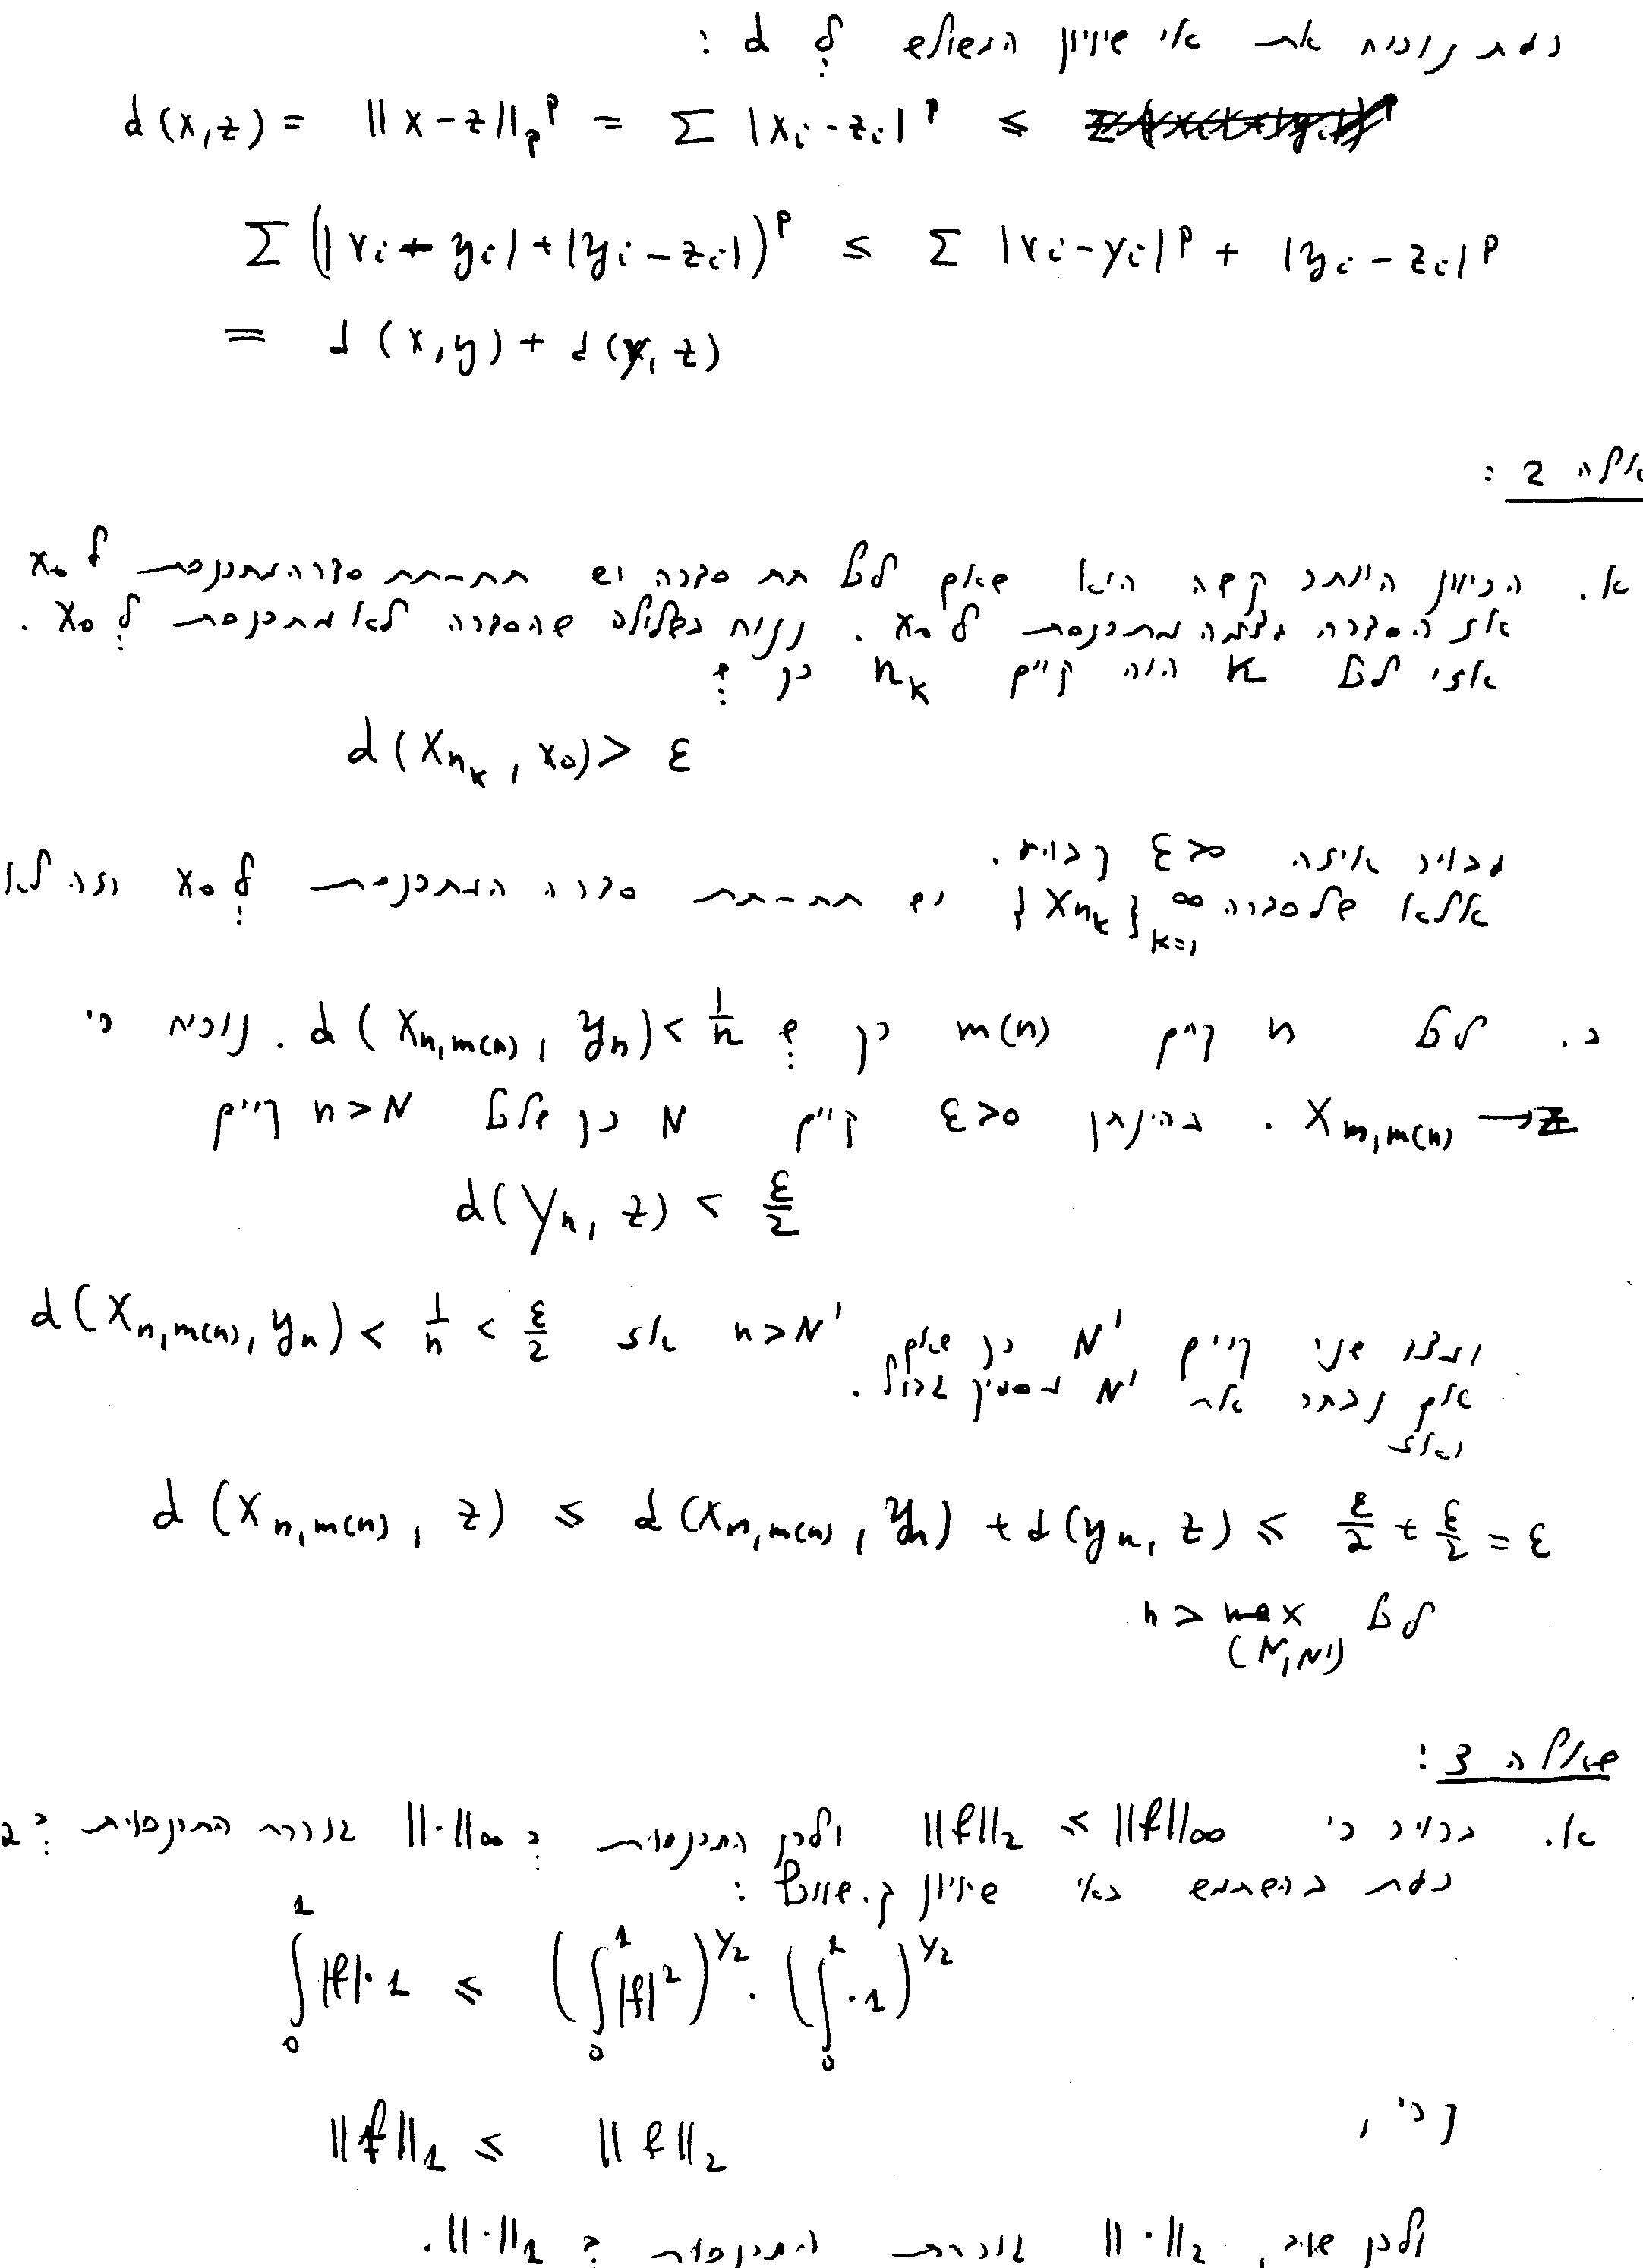 כעת נוכיח את אי שיוויון המשולש ל d :
d(x,z) = ||x-z||_p^p = Σ |x_i - z_i|^p ≤
Σ (|x_i - y_i| + |y_i - z_i|)^p ≤ Σ |x_i - y_i|^p + |y_i - z_i|^p
= d(x,y) + d(y,z)
אלה 2 :
א. הכיוון היותר קשה הוא שאם לכל תת סדרה יש תת-תת סדרה המתכנסת ל x_0
אז הסדרה עצמה מתכנסת ל x_0 . נניח בשלילה שהסדרה לא מתכנסת ל x_0 .
אזי לכל k היה קיים n_k כך ש
d(x_{n_k}, x_0) > ε
עבור איזה ε>0 קבוע.
אלא שלסדרה {x_{n_k}}_{k=1}^∞ יש תת-תת סדרה המתכנסת ל x_0 וזה לא
ב. לכל n קיים m(n) כך ש d(x_{n,m(n)}, y_n) < 1/n . נוכיח כי
x_{n,m(n)} → z . בהינתן ε>0 קיים N כך שלכל n>N קיים
d(y_n, z) < ε/2
ומצד שני קיים N' כך שאם n>N' אז d(x_{n,m(n)}, y_n) < 1/n < ε/2
אם נבחר את N' מספיק גדול.
ואז
d(x_{n,m(n)}, z) ≤ d(x_{n,m(n)}, y_n) + d(y_n, z) ≤ ε/2 + ε/2 = ε
לכל n > max(N,N')
שאלה 3 :
א. ברור כי ||f||_2 ≤ ||f||_∞ ולכן התכנסות ב ||·||_∞ גוררת התכנסות ב 2
כעת בהשתמש באי שיויון ק.שוורץ :
∫_0^1 |f|·1 ≤ (∫_0^1 |f|^2)^{1/2} · (∫_0^1 ·1)^{1/2}
כי ,
||f||_1 ≤ ||f||_2
ולכן שוב, ||·||_2 גוררת התכנסות ב ||·||_1 .